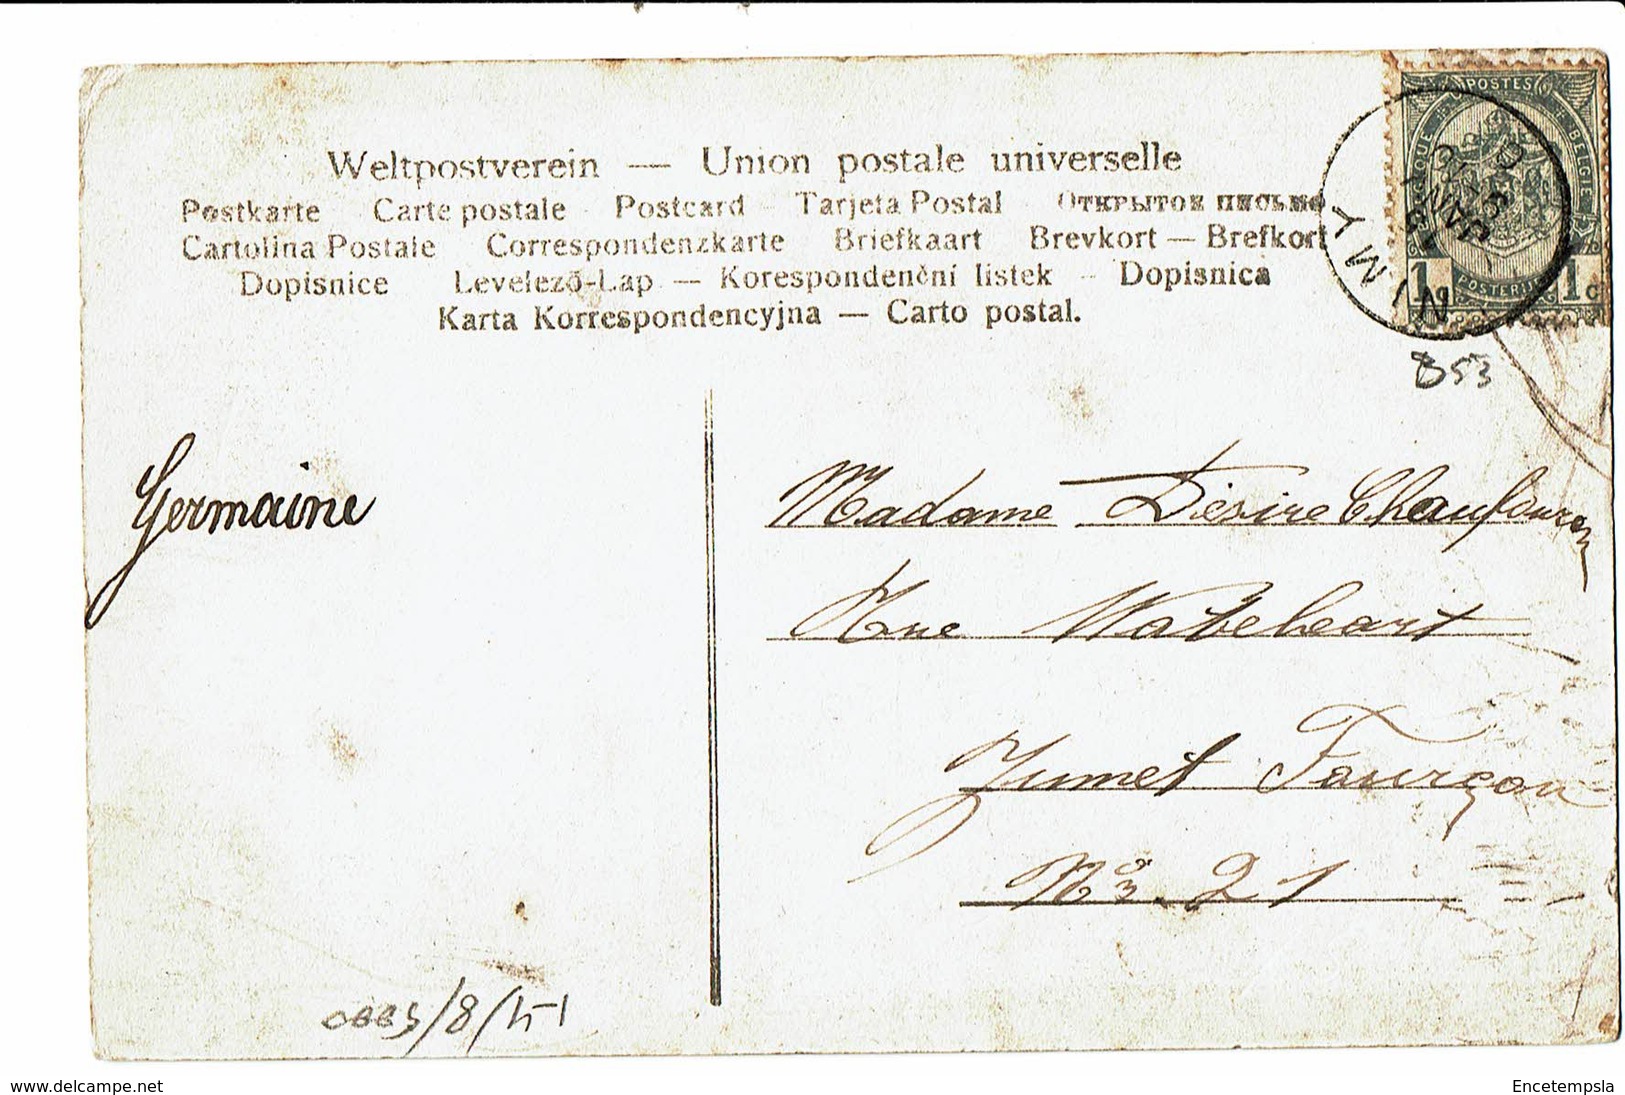 Weltpostverein — Union postale universelle
Postkarte Carte postale Postcard Tarjeta Postal Открытое письмо
Cartolina Postale Correspondenzkarte Briefkaart Brevkort — Brefkort
Dopisnice Levelező-Lap — Korespondenční listek — Dopisnica
Karta Korrespondencyjna — Carto postal.
POSTES
BELGIQUE
BELGIË
POSTERIJEN
1c 1c
NIMY
JANV
853
Germaine
Madame Désire
Rue
Jumet
No 21
www.delcampe.net
Encetempsla